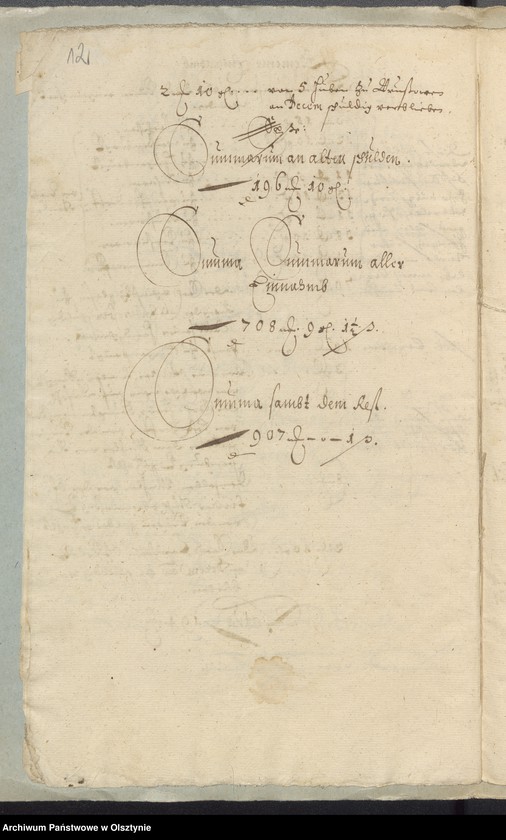 12
2 10 von 5 Huben zu
an Decem schuldig verblieben.
Summarum an alten schulden.
196 10
Summa Summarum aller
Einnahmb
708 9 1½
Summa sambt dem Rest.
907 – 0 – 1
Archiwum Państwowe w Olsztynie